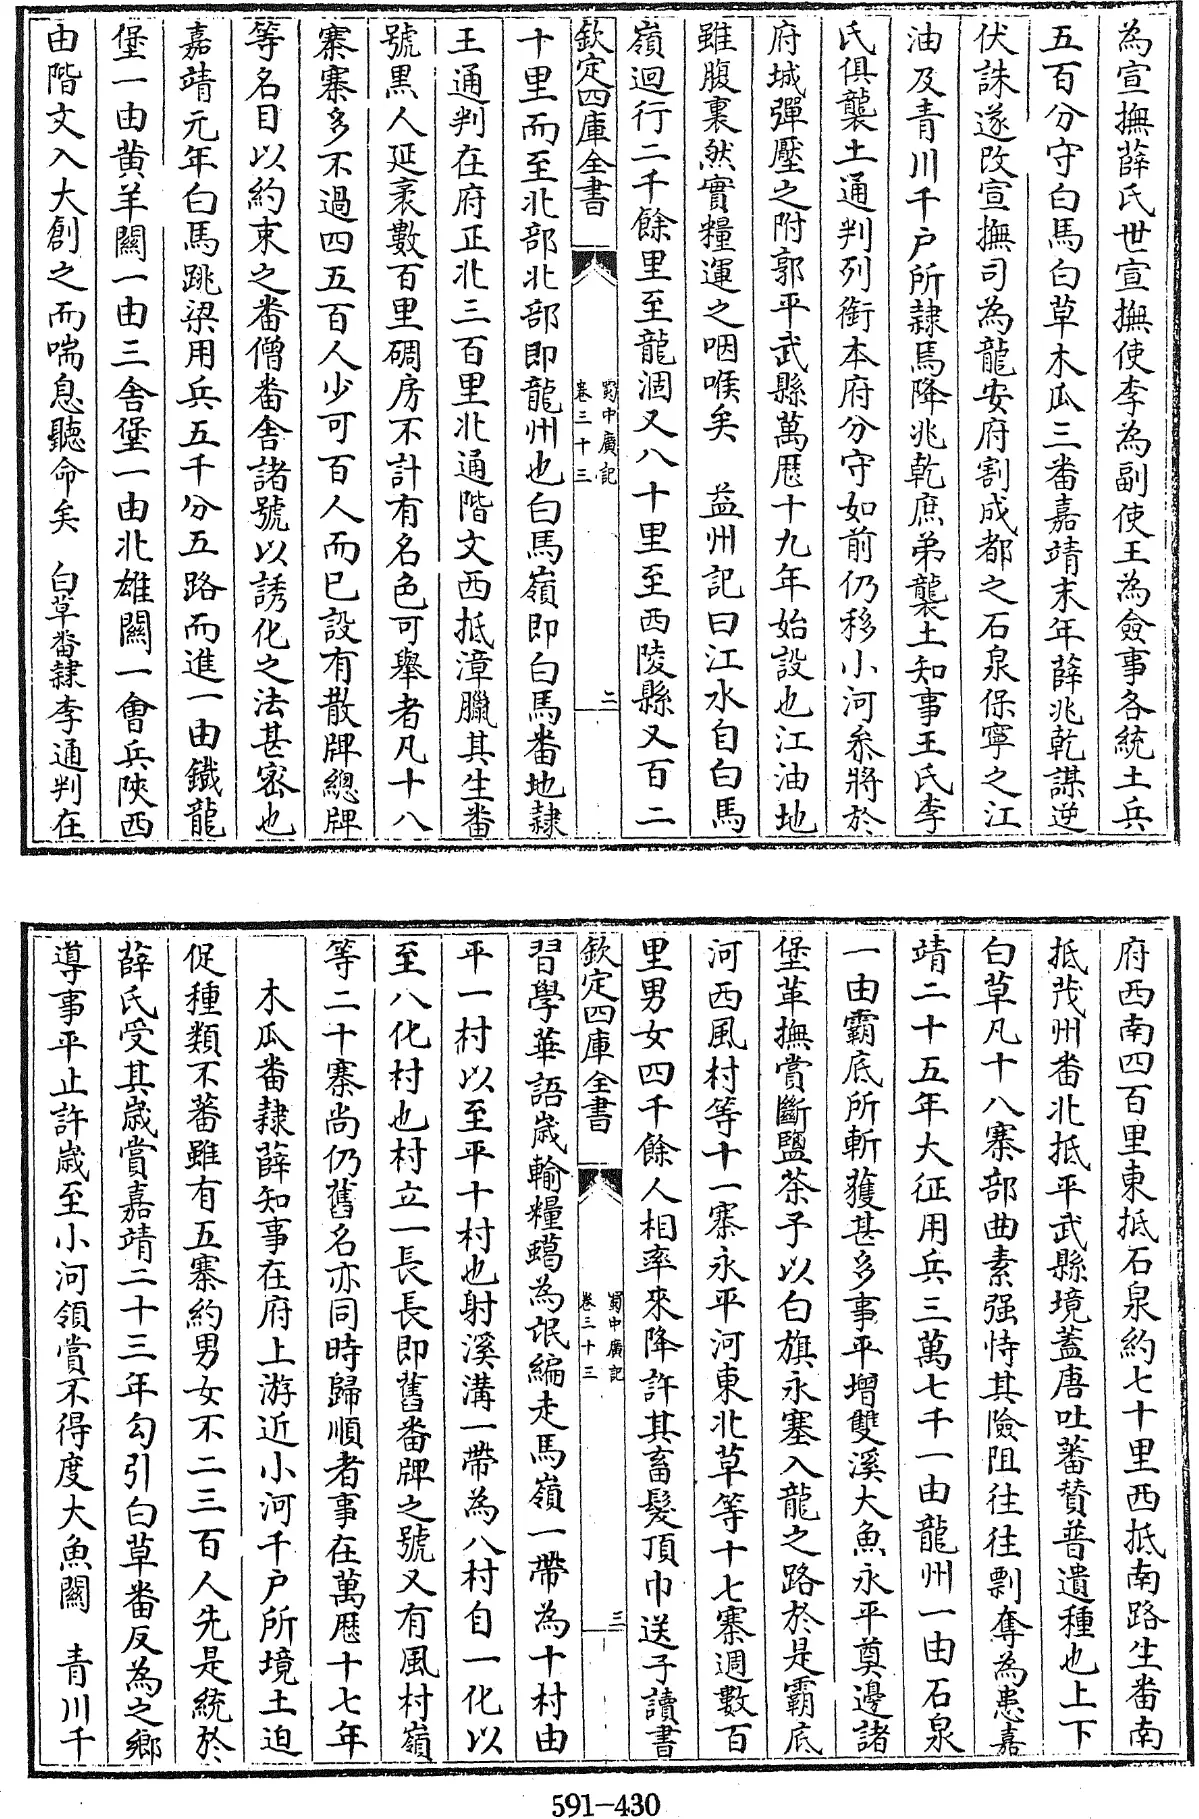 為宣撫薛氏世宣撫使李為副使王為僉事各統土兵
五百分守白馬白草木瓜三番嘉靖末年薛兆乾謀逆
伏誅遂改宣撫司為龍安府割成都之石泉保寧之江
油及青川千户所隷焉降兆乾庶弟襲土知事王氏李
氏俱襲土通判列銜本府分守如前仍移小河叅將於
府城彈壓之附郭平武縣萬厯十九年始設也江油地
雖腹裏然實糧運之咽喉矣　益州記曰江水自白馬
嶺迴行二千餘里至龍涸又八十里至西陵縣又百二
欽定四庫全書
蜀中廣記
卷三十三
二
十里而至北部北部即龍州也白馬嶺即白馬番地隷
王通判在府正北三百里北通階文西抵漳臘其生番
號黒人延袤數百里碉房不計有名色可舉者凡十八
寨寨多不過四五百人少可百人而已設有散牌總牌
等名目以約束之番僧番舍諸號以誘化之法甚宻也
嘉靖元年白馬跳梁用兵五千分五路而進一由鐵龍
堡一由黄羊關一由三舍堡一由北雄關一會兵陜西
由階文入大創之而喘息聽命矣　白草番隷李通判在
府西南四百里東抵石泉約七十里西抵南路生番南
抵茂州番北抵平武縣境蓋唐吐蕃賛普遺種也上下
白草凡十八寨部曲素强恃其險阻往往剽奪為患嘉
靖二十五年大征用兵三萬七千一由龍州一由石泉
一由霸底所斬獲甚多事平增雙溪大魚永平奠邊諸
堡革撫賞斷鹽茶予以白旗永塞入龍之路於是霸底
河西風村等十一寨永平河東北草等十七寨週數百
里男女四千餘人相率來降許其畜髮頂巾送子讀書
欽定四庫全書
蜀中廣記
卷三十三
三
習學華語歳輸糧蠟為氓編走馬嶺一帶為十村由
平一村以至平十村也射溪溝一帶為八村自一化以
至八化村也村立一長長即舊番牌之號又有風村嶺
等二十寨尚仍舊名亦同時歸順者事在萬厯十七年
木瓜番隷薛知事在府上游近小河千户所境土迫
促種類不蕃雖有五寨約男女不二三百人先是統於
薛氏受其歳賞嘉靖二十三年勾引白草番反為之鄉
導事平止許歳至小河領賞不得度大魚關　青川千
591-430